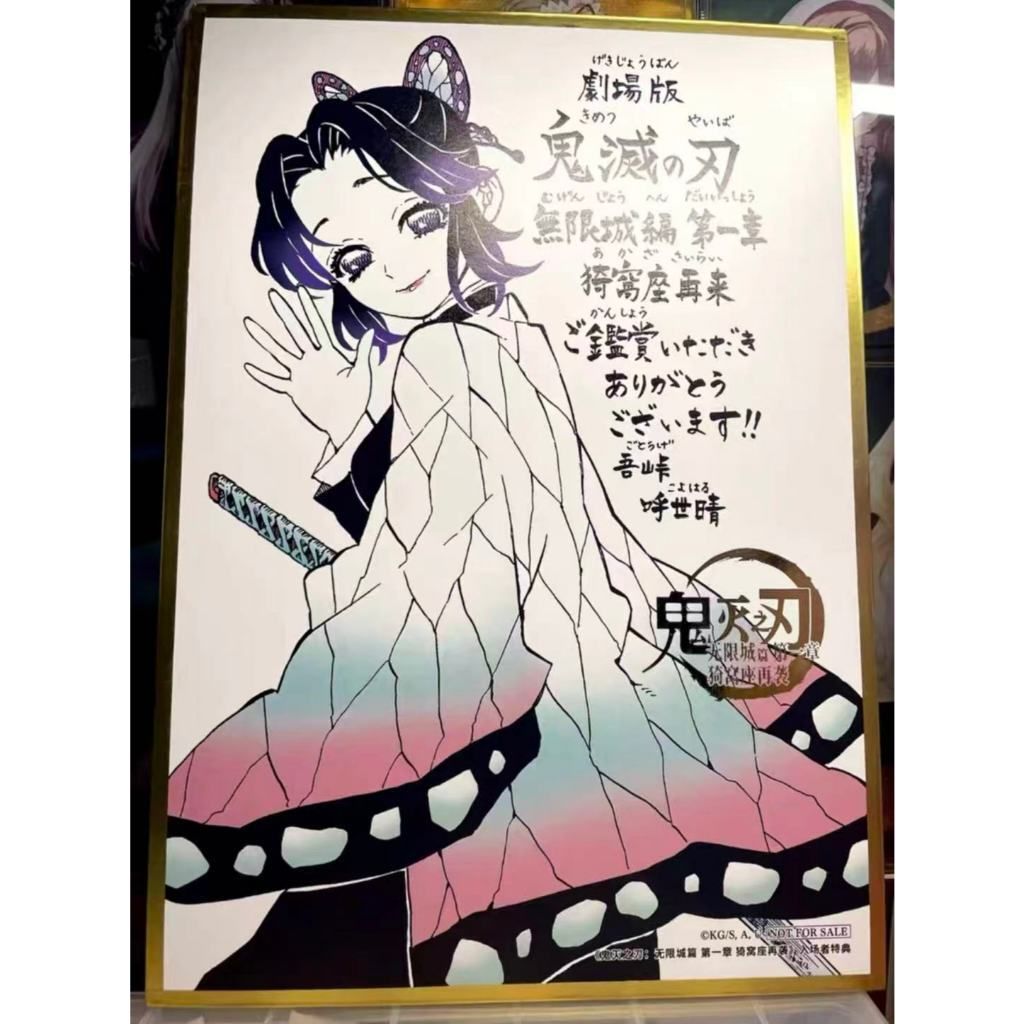 げきじょうばん
劇場版
きめつ やいば
鬼滅の刃
むげん じょう へん だいいっしょう
無限城編 第一章
あかざ さいらい
猗窩座再来
かんしょう
ご鑑賞いただき
ありがとう
ございます!!
ごとうげ
吾峠
こよはる
呼世晴
鬼灭之刃
无限城篇 第一章
猗窝座再袭
©KG/S, A, U NOT FOR SALE
《鬼灭之刃：无限城篇 第一章 猗窝座再袭》入场者特典